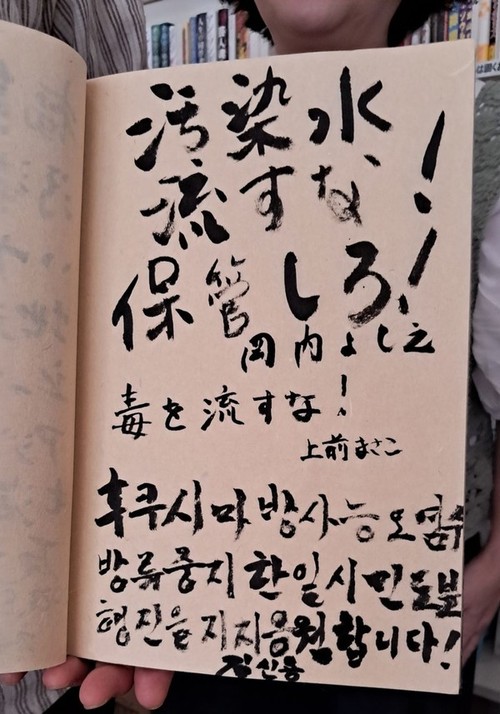 汚染水
流すな!
保管しろ!
岡内よし江
毒を流すな!
上前まさこ
후쿠시마 방사능 오염수
방류중지 한일시민도보
행진을 지지응원합니다!